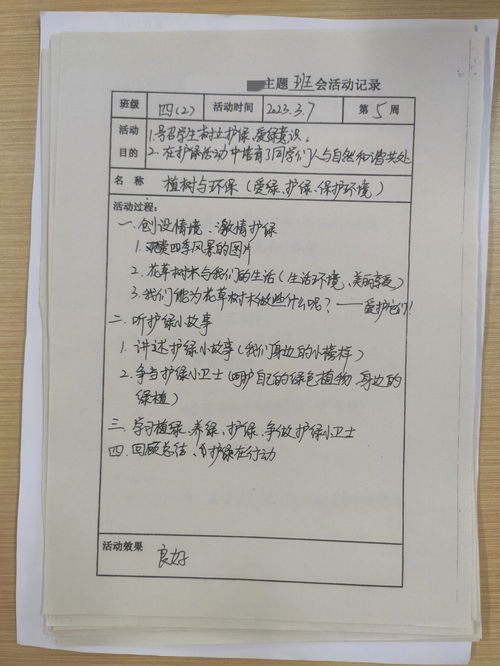 主题 班 会活动记录
班级 四(2) 活动时间 2023.3.7 第 5 周
活动目的 1.号召学生树立护绿、爱绿意识。
2.在护绿活动中培育了同学们人与自然和谐共处
名 称 植树与环保(爱绿、护绿、保护环境)
活动过程:
一、创设情境、激情护绿
1.观赏四季风景的图片
2.花草树木与我们的生活(生活环境、美丽)
3.我们能为花草树木做些什么呢?——爱护它们!
二、听护绿小故事
1.讲述护绿小故事(我们身边的小榜样)
2.争当护绿小卫士(呵护自己的绿色植物、身边的
绿植)
三、学习植绿、养绿、护绿、争做护绿小卫士
四、回顾总结、护绿在行动
活动效果 良好